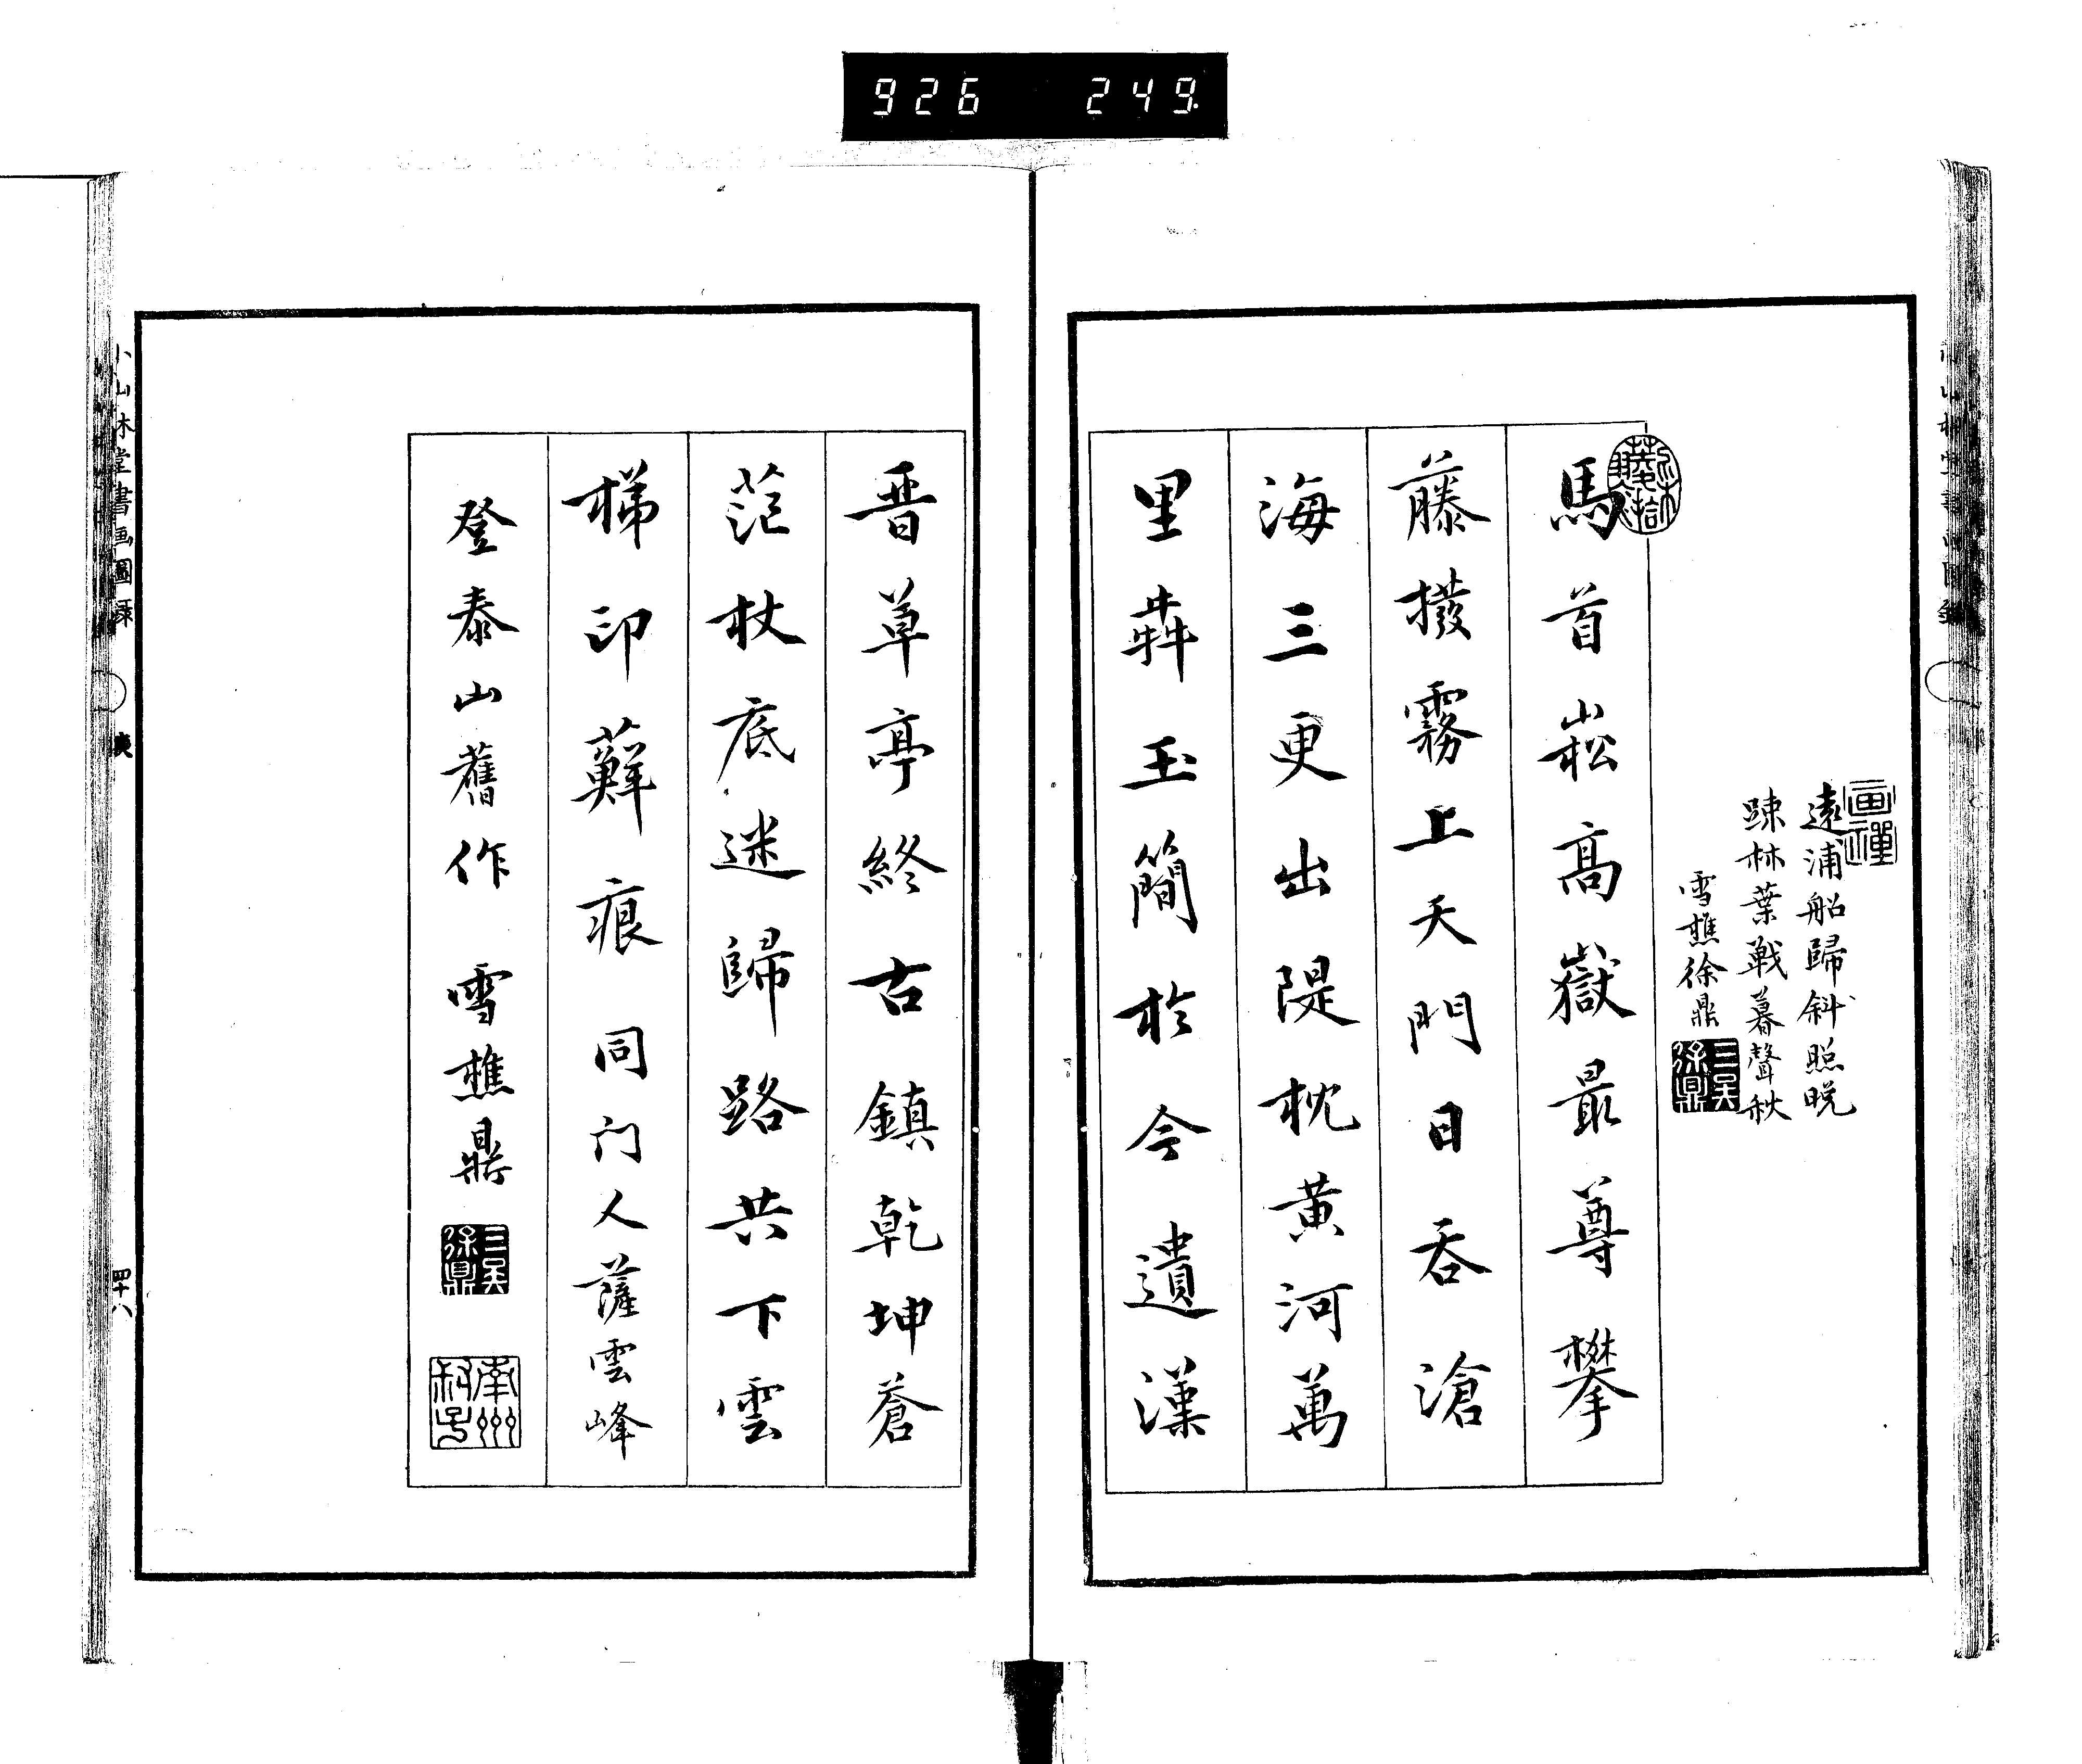 926 249
画禪
遠浦船歸斜照晩
踈林葉戰暮聲秋
雪樵徐鼎
三吳徐鼎
馬首崧高嶽最尊攀
藤撥霧上天門日吞滄
海三更出隄枕黄河萬
里犇玉簡於今遺漢
晋草亭終古鎮乾坤蒼
茫杖底迷歸路共下雲
梯印蘚痕同门人薩雲峰
登泰山舊作 雪樵鼎
三吳徐鼎
小山林堂書画圖録
四十八